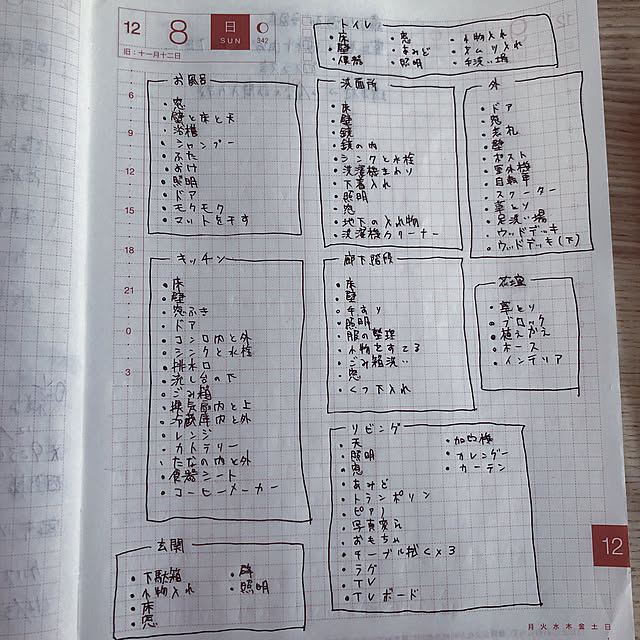 12 8 日 SUN 342
旧：十一月十二日
トイレ
・床
・壁
・便器
・窓
・あみど
・照明
・小物入れ
・オムツ入れ
・手洗い場
お風呂
・窓
・壁と床と天
・浴槽
・シャンプー
・ふた
・おけ
・照明
・ドア
・モクモク
・マットを干す
洗面所
・床
・壁
・鏡
・鏡の内
・シンクと水栓
・洗濯機まわり
・下着入れ
・照明
・窓
・地下の入れ物
・洗濯機クリーナー
外
・ドア
・窓
・表札
・壁
・ポスト
・室外機
・自転車
・スクーター
・草とり
・足洗い場
・ウッドデッキ
・ウッドデッキ(下)
キッチン
・床
・壁
・窓ふき
・ドア
・コンロ内と外
・シンクと水栓
・排水口
・流し台の下
・ごみ箱
・換気扇内と上
・冷蔵庫内と外
・レンジ
・カトラリー
・たなの内と外
・食器シート
・コーヒーメーカー
廊下階段
・床
・壁
・手すり
・照明
・服の整理
・小物をすてる
・ごみ箱洗い
・窓
・くつ下入れ
花壇
・草とり
・ブロック
・植えかえ
・ホース
・インテリア
リビング
・天
・照明
・窓
・あみど
・トランポリン
・ピアノ
・写真変える
・おもちゃ
・テーブル拭く×3
・ラグ
・TV
・TVボード
・加湿機
・カレンダー
・カーテン
玄関
・下駄箱
・小物入れ
・床
・窓
・壁
・照明
6
9
12
15
18
21
0
3
12
月火水木金土日